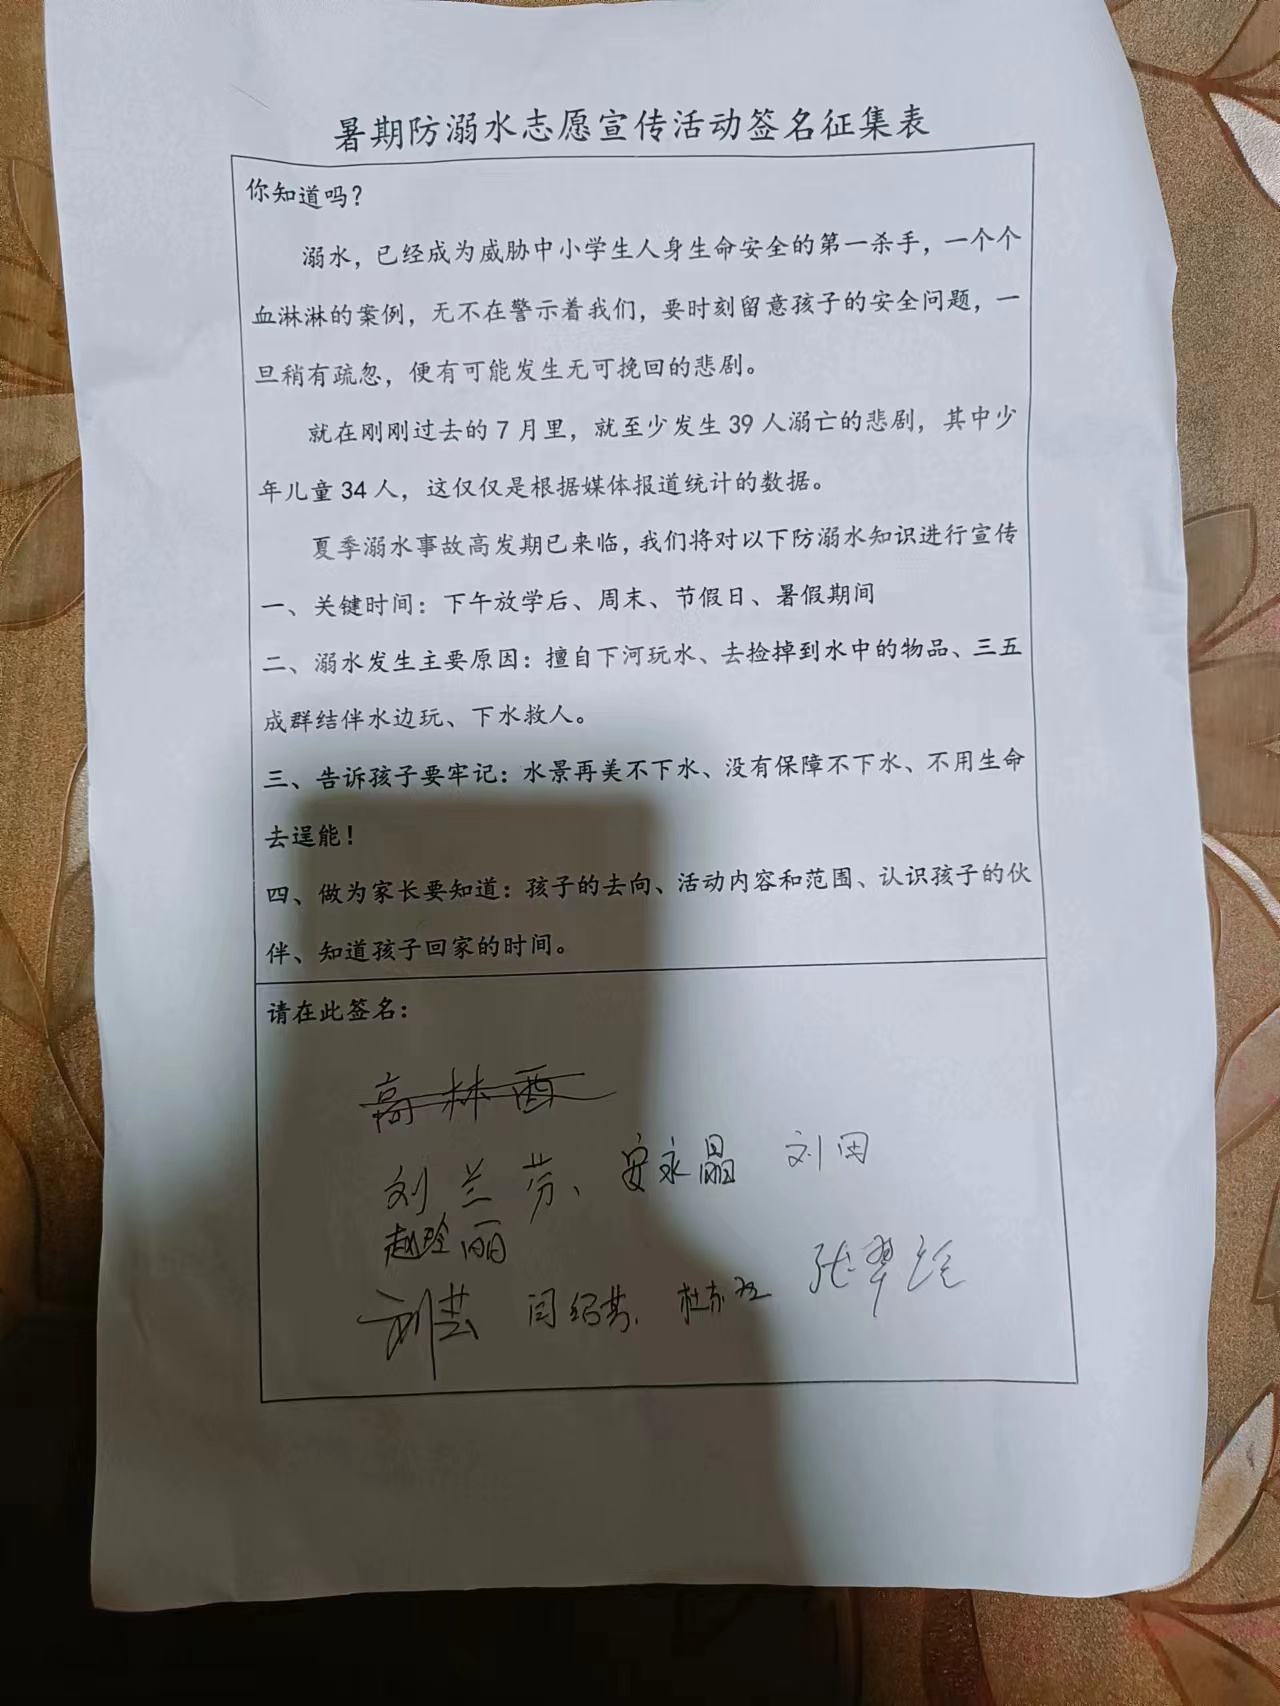 暑期防溺水志愿宣传活动签名征集表
你知道吗？
溺水，已经成为威胁中小学生人身生命安全的第一杀手，一个个
血淋淋的案例，无不在警示着我们，要时刻留意孩子的安全问题，一
旦稍有疏忽，便有可能发生无可挽回的悲剧。
就在刚刚过去的 7 月里，就至少发生 39 人溺亡的悲剧，其中少
年儿童 34 人，这仅仅是根据媒体报道统计的数据。
夏季溺水事故高发期已来临，我们将对以下防溺水知识进行宣传
一、关键时间：下午放学后、周末、节假日、暑假期间
二、溺水发生主要原因：擅自下河玩水、去捡掉到水中的物品、三五
成群结伴水边玩、下水救人。
三、告诉孩子要牢记：水景再美不下水、没有保障不下水、不用生命
去逞能！
四、做为家长要知道：孩子的去向、活动内容和范围、认识孩子的伙
伴、知道孩子回家的时间。
请在此签名：
高林酉
刘兰芬、安永晶 刘田
赵玲丽
刘芸